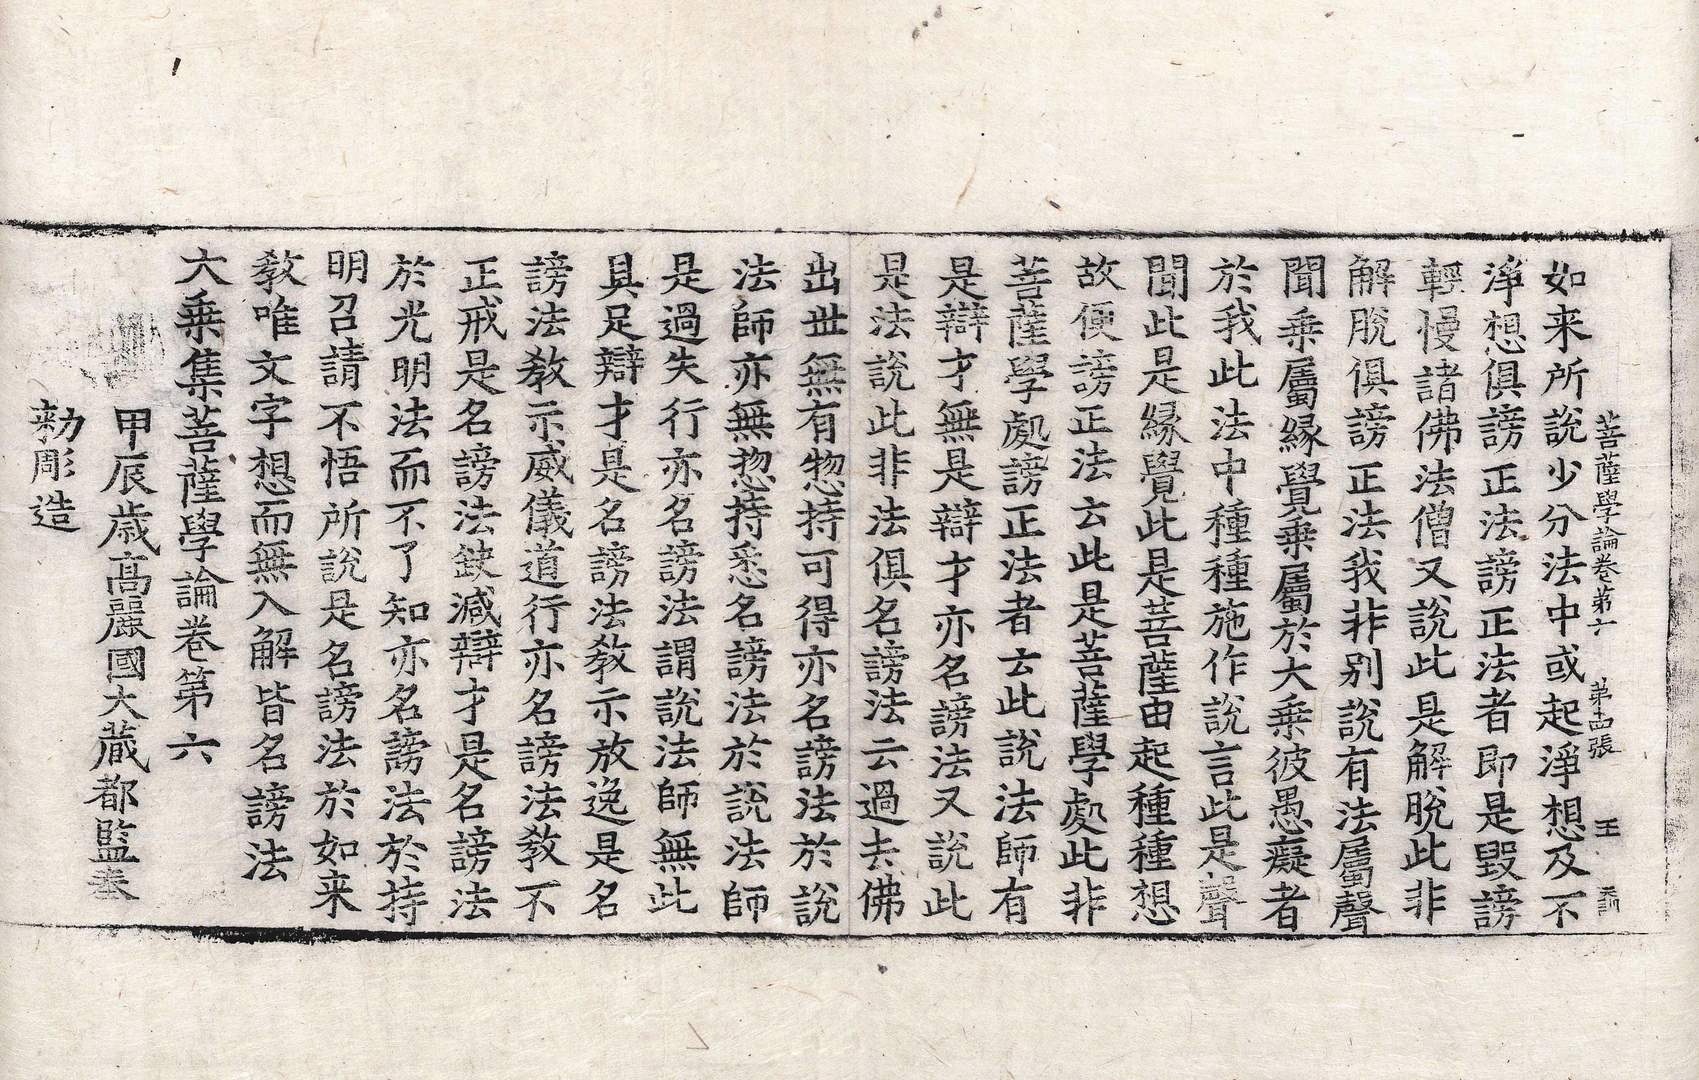 菩薩學論卷第六 第十四張 王
如来所說少分法中或起淨想及不
淨想俱謗正法謗正法者即是毀謗
輕慢諸佛法僧又說此是解脫此非
解脫俱謗正法我非别說有法屬聲
聞乗屬緣覺乗屬於大乗彼愚癡者
於我此法中種種施作說言此是聲
聞此是緣覺此是菩薩由起種種想
故便謗正法云此是菩薩學處此非
菩薩學處謗正法者云此說法師有
是辯才無是辯才亦名謗法又說此
是法說此非法俱名謗法云過去佛
出世無有惣持可得亦名謗法於說
法師亦無惣持悉名謗法於說法師
是過失行亦名謗法謂說法師無此
具足辯才是名謗法教示放逸是名
謗法教示威儀道行亦名謗法教不
正戒是名謗法缺減辯才是名謗法
於光明法而不了知亦名謗法於持
明召請不悟所說是名謗法於如来
教唯文字想而無入解皆名謗法
大乗集菩薩學論卷第六
甲辰歲高麗國大藏都監奉
勅彫造